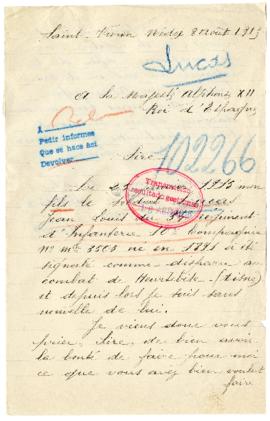 Saint-Vivien Médoc 8 Août 1915
Lucas
A Sa Majesté Alphonse XII
Roi d'Espagne
A
Pedir informes
Que se hace aci
Devolver
Sire
102266
Le 25 1915 mon
fils le soldat Lucas
Jean Louis du 34e Régiment
d'Infanterie 11e Compagnie
No mle 3503 né en 1891 a été
signalé comme disparu au
combat de Heurtebise (Aisne)
et depuis lors je suis sans
nouvelle de lui.
Je viens donc vous
prier, Sire, de bien avoir
la bonté de faire pour moi
ce que vous avez bien voulu
faire